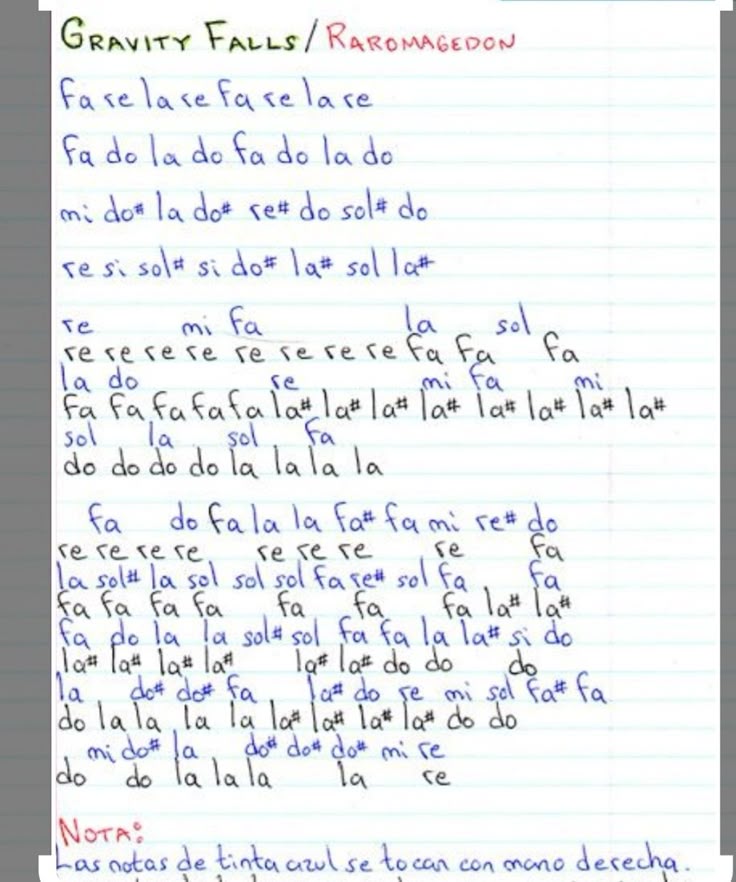 GRAVITY FALLS / RAROMAGEDON
fa re la re fa re la re
fa do la do fa do la do
mi do# la do# re# do sol# do
re si sol# si do# la# sol la#
re mi fa la sol
re re re re re re re re fa fa fa
la do re mi fa mi
fa fa fa fa fa la# la# la# la# la# la# la# la#
sol la sol fa
do do do do la la la la
fa do fa la la fa# fa mi re# do
re re re re re re re re fa
la sol# la sol sol sol fa re# sol fa fa
fa fa fa fa fa fa fa la# la#
fa do la la sol# sol fa fa la la# si do
la# la# la# la# la# la# do do do
la do# do# fa la# do re mi sol fa# fa
do la la la la la# la# la# la# do do
mi do# la do# do# do# mi re
do do la la la la re
NOTA:
Las notas de tinta azul se tocan con mano derecha.